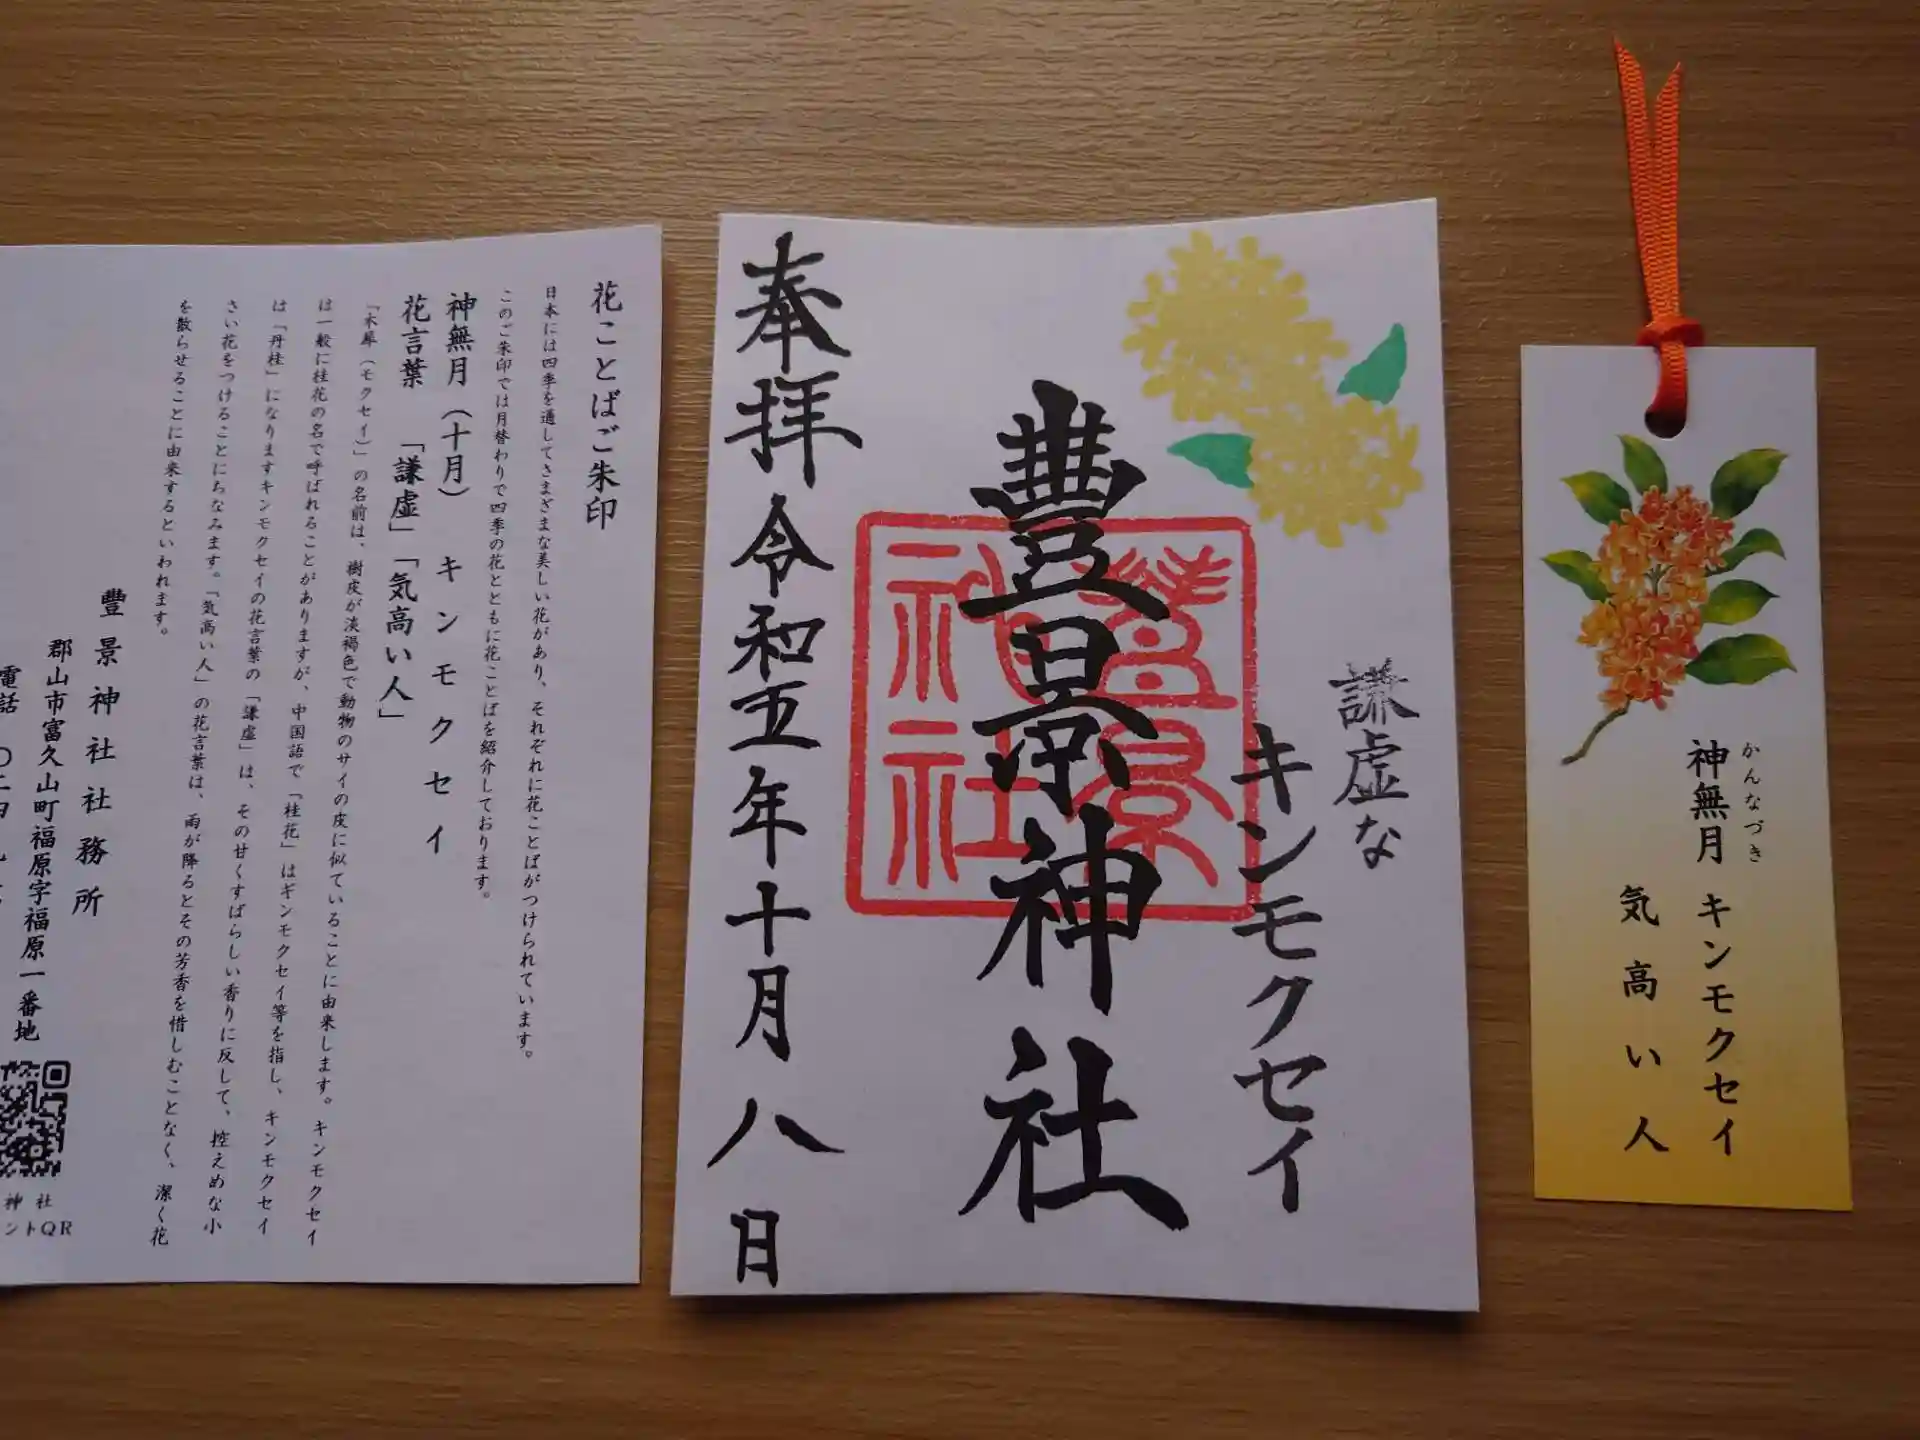 花ことばご朱印
日本には四季を通してさまざまな美しい花があり、それぞれに花ことばがつけられています。
このご朱印では月替わりで四季の花とともに花ことばを紹介しております。
神無月（十月）　キンモクセイ
花言葉　「謙虚」「気高い人」
「木犀（モクセイ）」の名前は、樹皮が淡褐色で動物のサイの皮に似ていることに由来します。キンモクセイ
は一般に桂花の名で呼ばれることがありますが、中国語で「桂花」はギンモクセイ等を指し、キンモクセイ
は「丹桂」になりますキンモクセイの花言葉の「謙虚」は、その甘くすばらしい香りに反して、控えめな小
さい花をつけることにちなみます。「気高い人」の花言葉は、雨が降るとその芳香を惜しむことなく、潔く花
を散らせることに由来するといわれます。
豐景神社社務所
郡山市富久山町福原字福原一番地
電話　〇二四
神社
ントQR
謙虚な
キンモクセイ
豊景神社
豊景
神社
奉拝　令和五年十月八日
かんなづき
神無月　キンモクセイ
気高い人